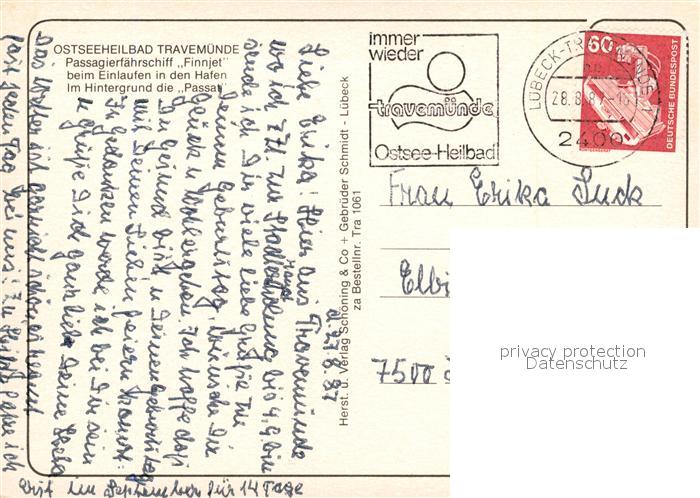 OSTSEEHEILBAD TRAVEMÜNDE
Passagierfährschiff „Finnjet"
beim Einlaufen in den Hafen
Im Hintergrund die „Passat"
immer
wieder
travemünde
Ostsee-Heilbad
LÜBECK-TRAVEMÜNDE
28.8.87-16
2400
60
DEUTSCHE BUNDESPOST
Herst. u. Verlag Schöning & Co + Gebrüder Schmidt - Lübeck
za Bestellnr. Tra 1061
d. 27.8.87
Liebe Erika! Hier aus Travemünde
wo ich z.Zt. zur bis 4.9. bin
sende ich Dir viele liebe Grüße zu
Deinem Geburtstag, wünsche Dir
Glück u. Wohlergehen. Ich hoffe daß
Du gesund bist u. Deinen Geburtstag
mit Deinen Lieben feiern kannst.
In Gedanken werde ich bei Dir sein
u. grüße Dich ganz lieb Deine
Das Wetter ist gar nicht schön es regnet
fast jeden Tag bei uns. ich
erst im September für 14 Tage
Frau Erika
Elbi
7500
privacy protection
Datenschutz